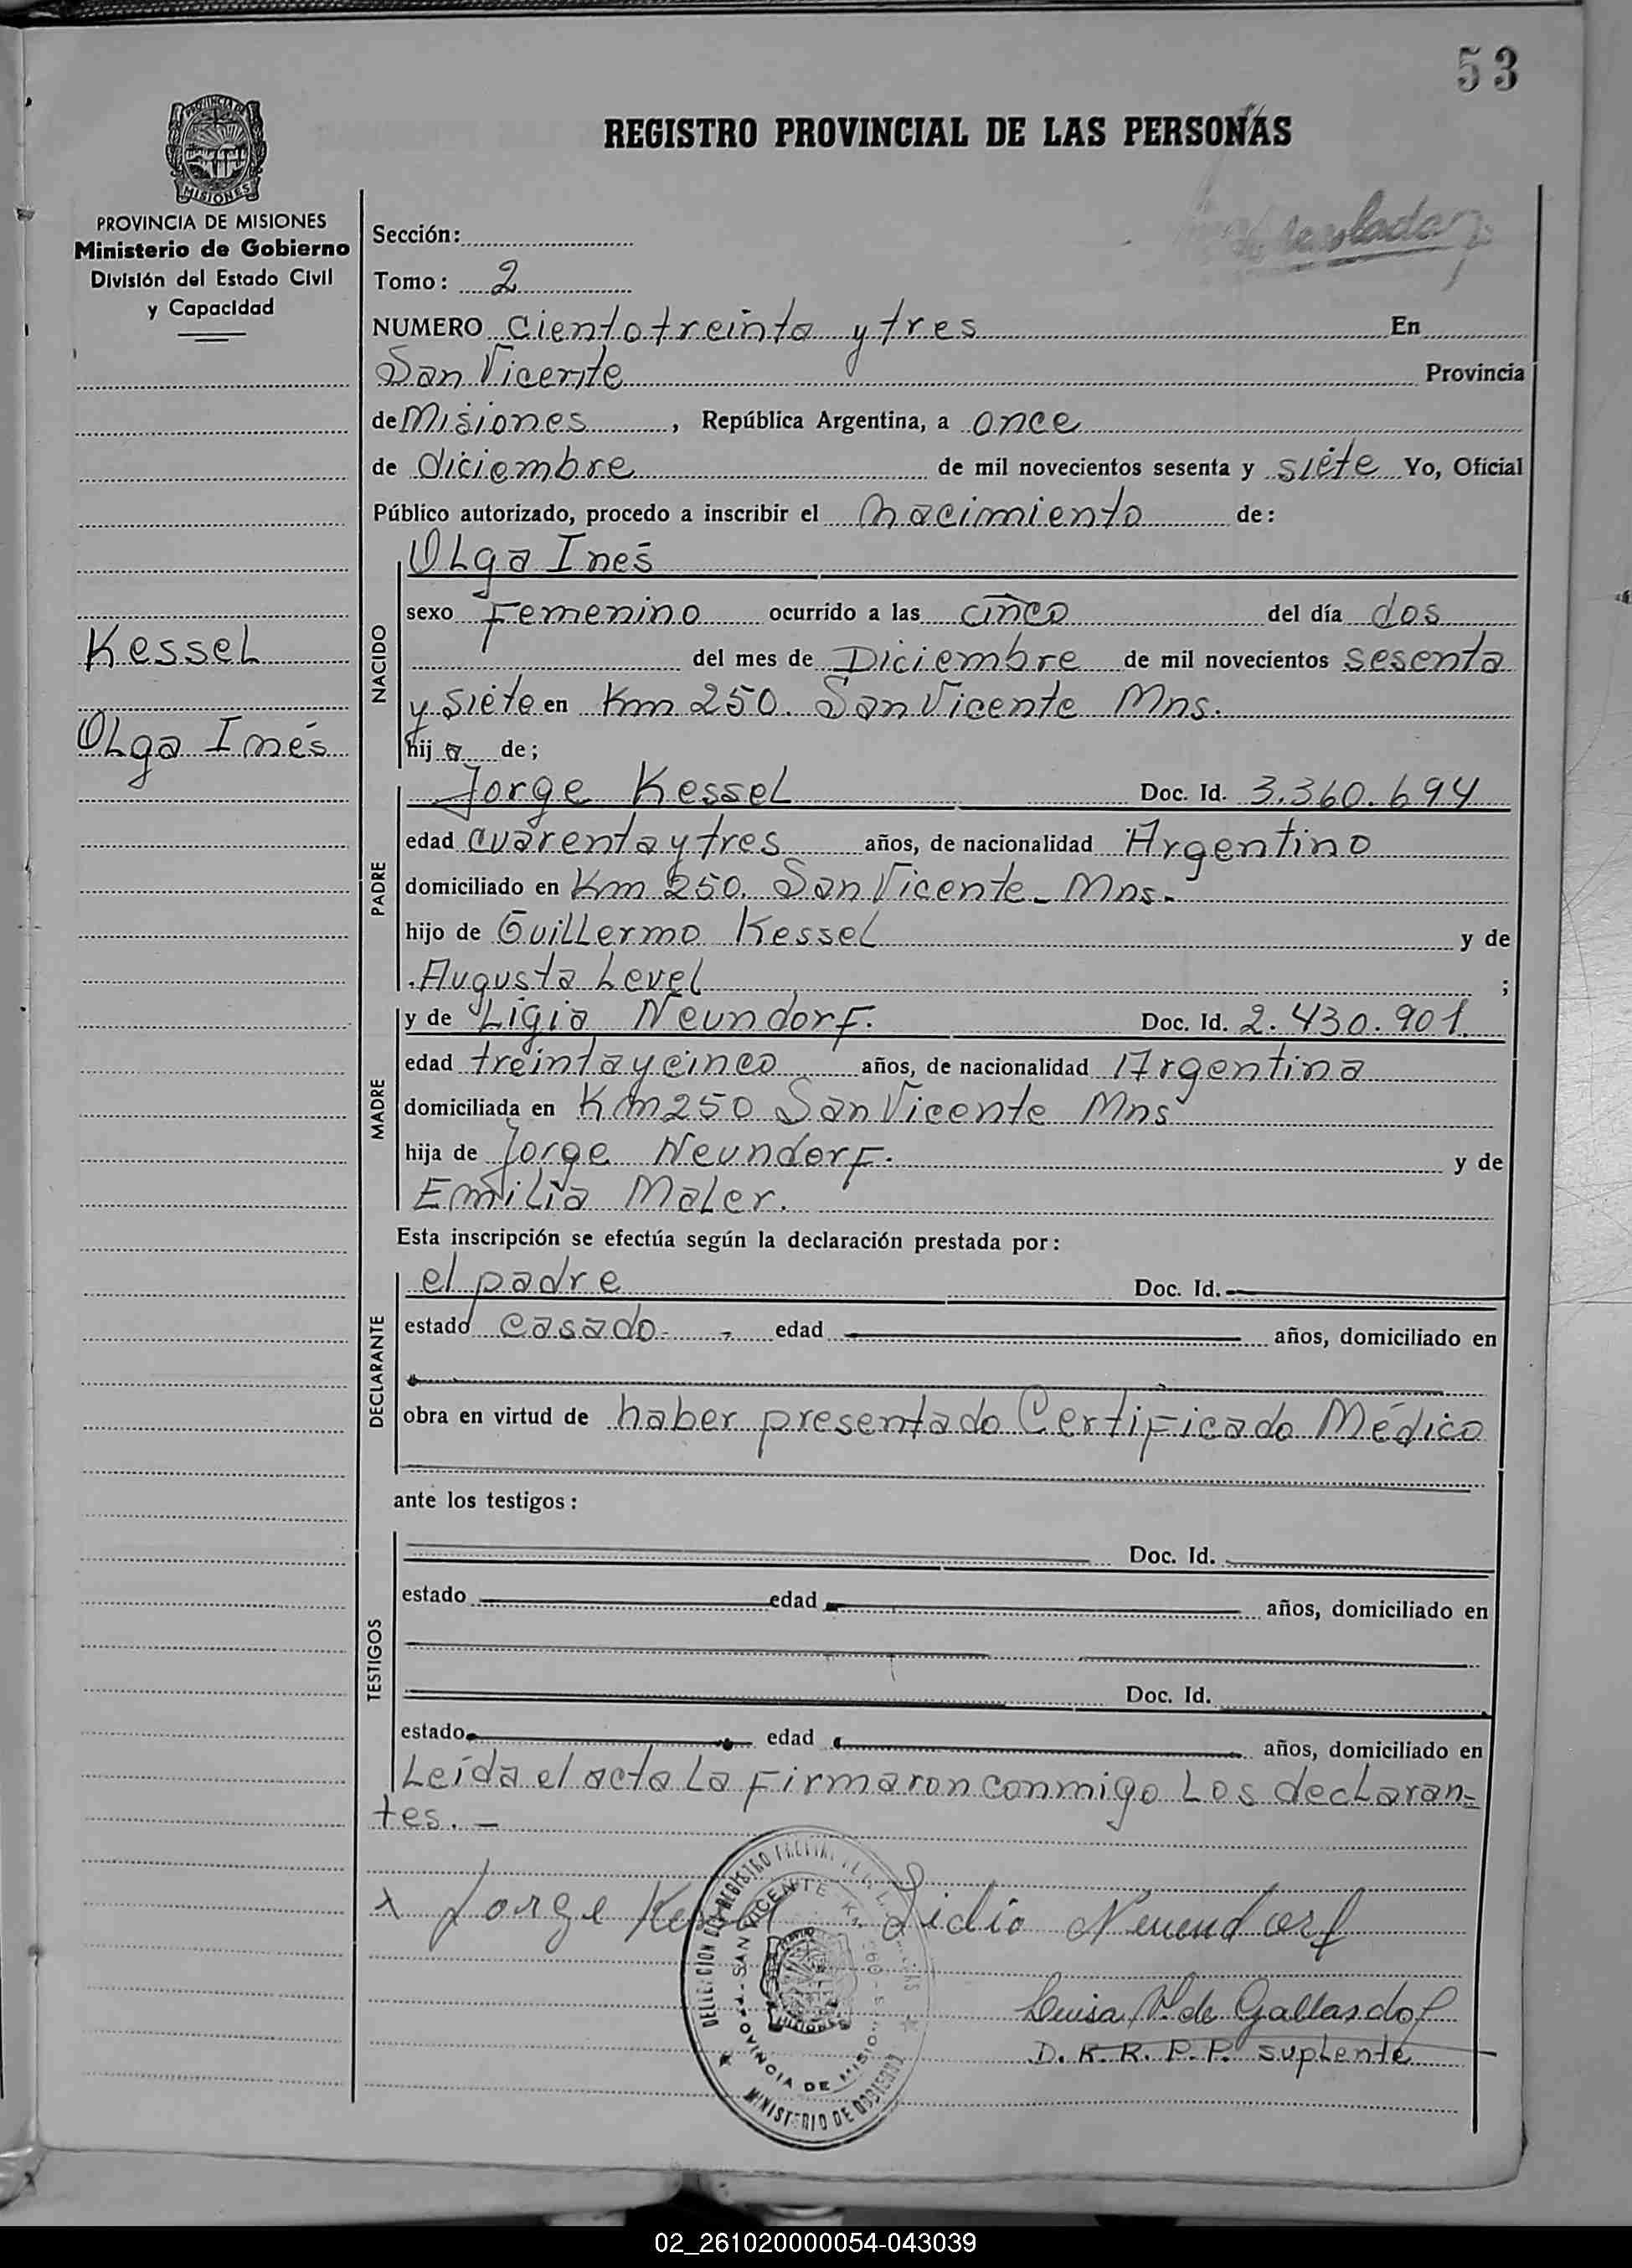 53
REGISTRO PROVINCIAL DE LAS PERSONAS
PROVINCIA DE
MISIONES
PROVINCIA DE MISIONES
Ministerio de Gobierno
División del Estado Civil
y Capacidad
Kessel
Olga Inés
Sección:
Tomo: 2
NUMERO Ciento treinta y tres En
San Vicente Provincia
de Misiones, República Argentina, a once
de diciembre de mil novecientos sesenta y siete Yo, Oficial
Público autorizado, procedo a inscribir el nacimiento de:
NACIDO
Olga Inés
sexo Femenino ocurrido a las cinco del día dos
del mes de Diciembre de mil novecientos sesenta
y siete en Km 250. San Vicente Mns.
hija de;
PADRE
Jorge Kessel Doc. Id. 3.360.694
edad cuarenta y tres años, de nacionalidad Argentino
domiciliado en Km 250. San Vicente - Mns.-
hijo de Guillermo Kessel y de
Augusta Level ;
MADRE
y de Ligia Neundorf. Doc. Id. 2.430.901.
edad treinta y cinco años, de nacionalidad Argentina
domiciliada en Km 250 San Vicente Mns
hija de Jorge Neundorf. y de
Emilia Maler.
Esta inscripción se efectúa según la declaración prestada por:
DECLARANTE
el padre Doc. Id.
estado casado.- edad años, domiciliado en
obra en virtud de haber presentado Certificado Médico
ante los testigos:
TESTIGOS
Doc. Id.
estado edad años, domiciliado en
Doc. Id.
estado edad años, domiciliado en
Leída el acta la firmaron conmigo los declaran-
tes. -
x Jorge Kessel Lidio Neuendorf
DELEGACION DEL REGISTRO
SAN VICENTE
PROVINCIA DE MISIONES
MINISTERIO DE GOBIERNO
Luisa V. de Gallardo
D. R. R. P. P. suplente
02_261020000054-043039